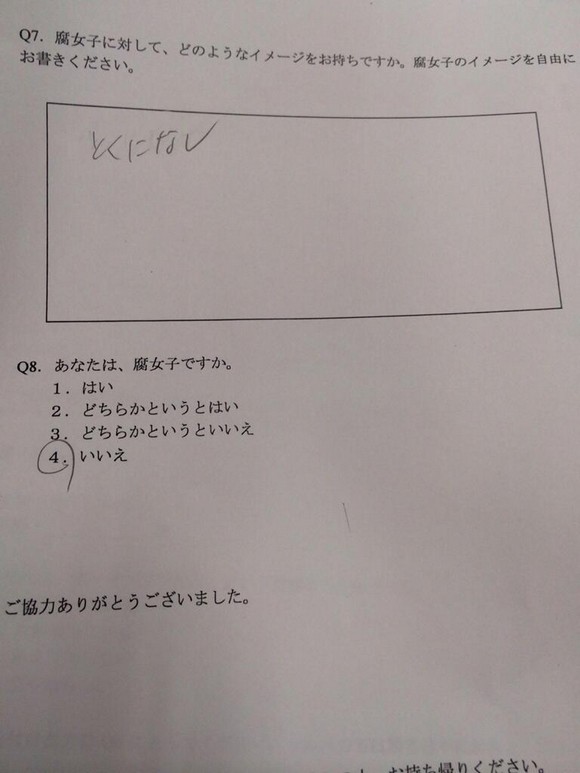 Q7. 腐女子に対して、どのようなイメージをお持ちですか。腐女子のイメージを自由に
お書きください。
とくになし
Q8. あなたは、腐女子ですか。
1. はい
2. どちらかというとはい
3. どちらかというといいえ
4. いいえ
ご協力ありがとうございました。
お持ち帰りください。